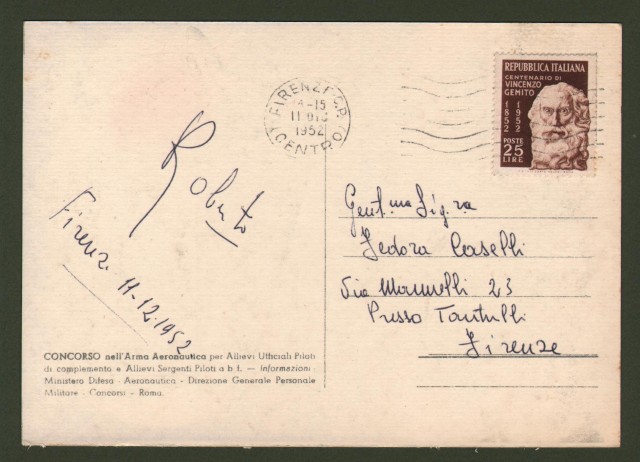 FIRENZE C.P.
14-15
11 DIC
1952
(CENTRO)
REPUBBLICA ITALIANA
CENTENARIO DI
VINCENZO
GEMITO
1852
1952
POSTE
25
LIRE
Roberto
Firenze 11-12-1952
Gent.ma Sig.ra
Fedora Caselli
Via Mannelli 23
Presso Tantulli
Firenze
CONCORSO nell'Arma Aeronautica per Allievi Ufficiali Piloti
di complemento e Allievi Sergenti Piloti a b. t. — Informazioni:
Ministero Difesa - Aeronautica - Direzione Generale Personale
Militare - Concorsi - Roma.